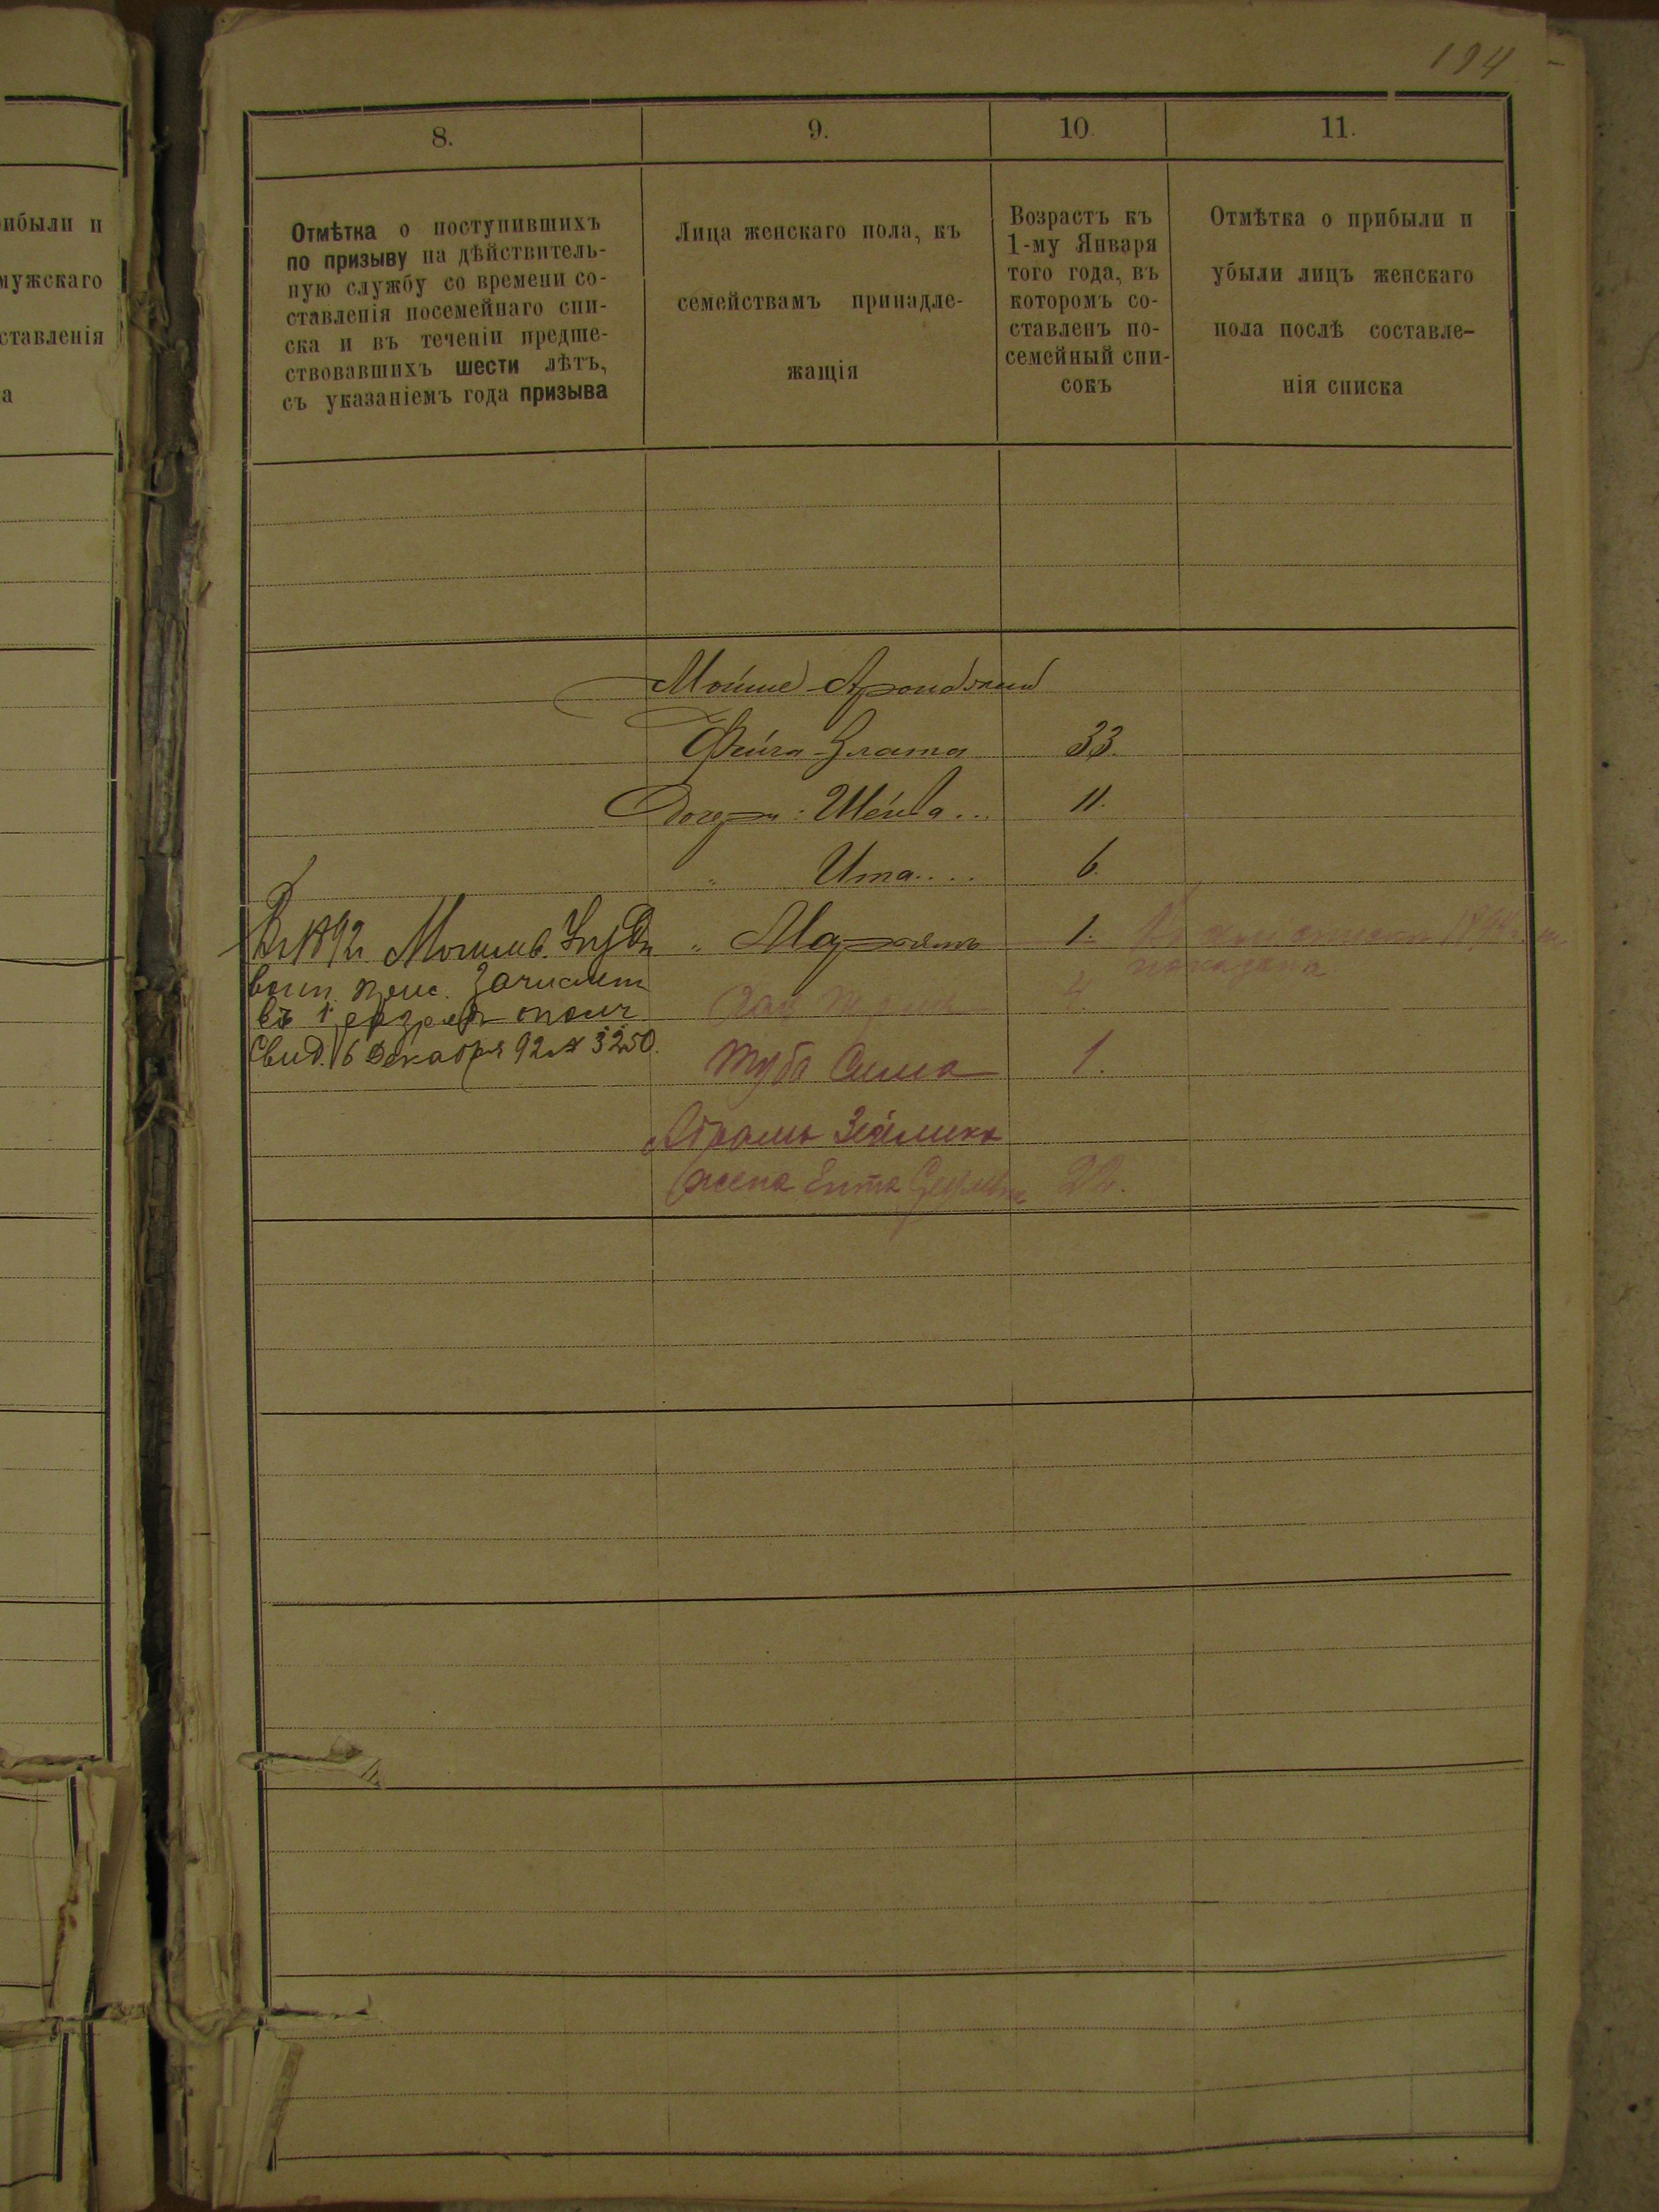 194
8.
9.
10.
11.
ибыли и
мужскаго
ставленія
а
Отмѣтка о поступившихъ
по призыву на дѣйствитель-
ную службу со времени со-
ставленія посемейнаго спи-
ска и въ теченіи предше-
ствовавшихъ шести лѣтъ,
съ указаніемъ года призыва
Лица женскаго пола, къ
семействамъ принадле-
жащія
Возрастъ къ
1-му Января
того года, въ
которомъ со-
ставленъ по-
семейный спи-
сокъ
Отмѣтка о прибыли и
убыли лицъ женскаго
пола послѣ составле-
нія списка
Мойше
Фейга-Злата 33.
Дочери: Шейда... 11.
" Ита.... 6.
Въ 1892 Могилив. " Маріямъ 1.
Зачислен
показана
въ 1 разряд ополч 4
Свид. 16 Декабря 92 № 3250.
Туба Сима 1.
Абрамъ
жена Ента 22.